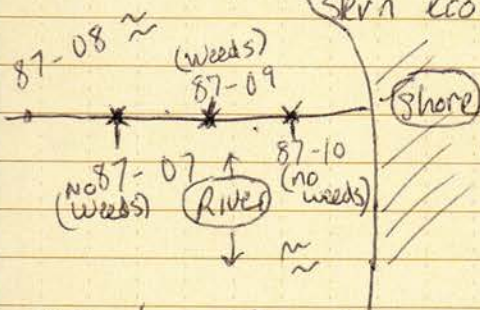 87-08
(weeds)
87-09
shore
87-07
NO
(weeds)
River
87-10
(no
weeds)